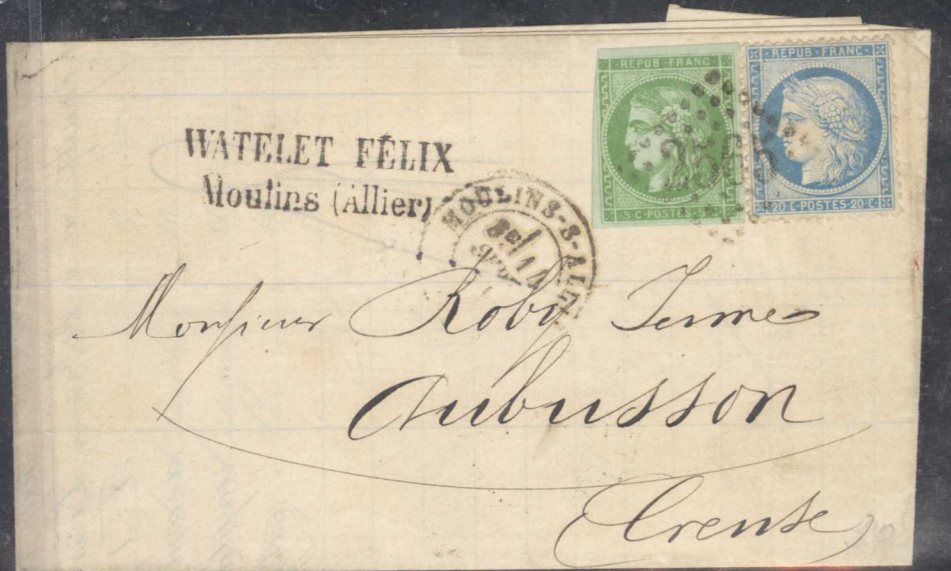 WATELET FÉLIX
Moulins (Allier)
REPUB FRANC
5 C·POSTES
REPUB·FRANC
20·C·POSTES·20·C
MOULINS-S-ALL
14
Monsieur Roby
Aubusson
Creuse